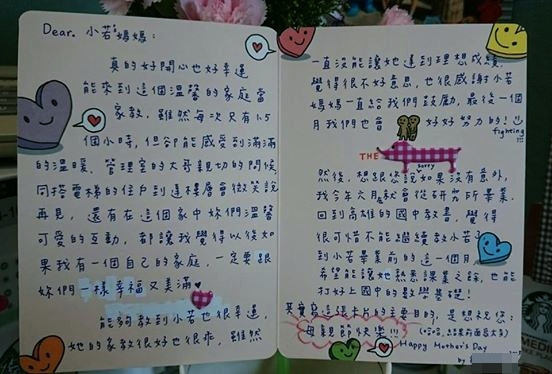 Dear. 小若媽媽:
真的好開心也好幸運
能來到這個溫馨的家庭當
家教,雖然每次只有1.5
個小時,但卻能感受到滿滿
的溫暖、管理室的大哥親切的問候
同搭電梯的住戶到達樓層會微笑說
再見,還有在這個家中妳們溫馨
可愛的互動,都讓我覺得以後如
果我有一個自己的家庭,一定要跟
妳們一樣幸福又美滿♥
能夠教到小若也很幸運,
她的家教很好也很乖,雖然
一直沒能讓她達到理想成績,
覺得很不好意思,也很感謝小若
媽媽一直給我們鼓勵,最後一個
月我們也會 好好努力的!
fighting
THE
sorry
然後,想跟您說如果沒有意外,
我今年六月就會從研究所畢業,
回到高雄的國中教書,覺得
很可惜不能繼續教小若
到小若畢業前的這一個月
希望能讓她熟悉課業之餘,也能
打好上國中的數學基礎!
其實寫這張卡片的主要目的,是想祝您:
母親節快樂!!! (哈哈,結果前面太多)
Happy Mother's Day
by